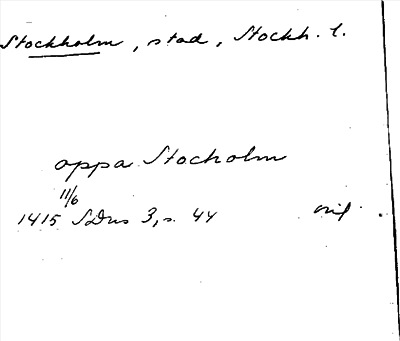 Stockholm, stad, Stockh. l.
oppa Stocholm
11/6
1415 SDns 3, s. 44 orig.